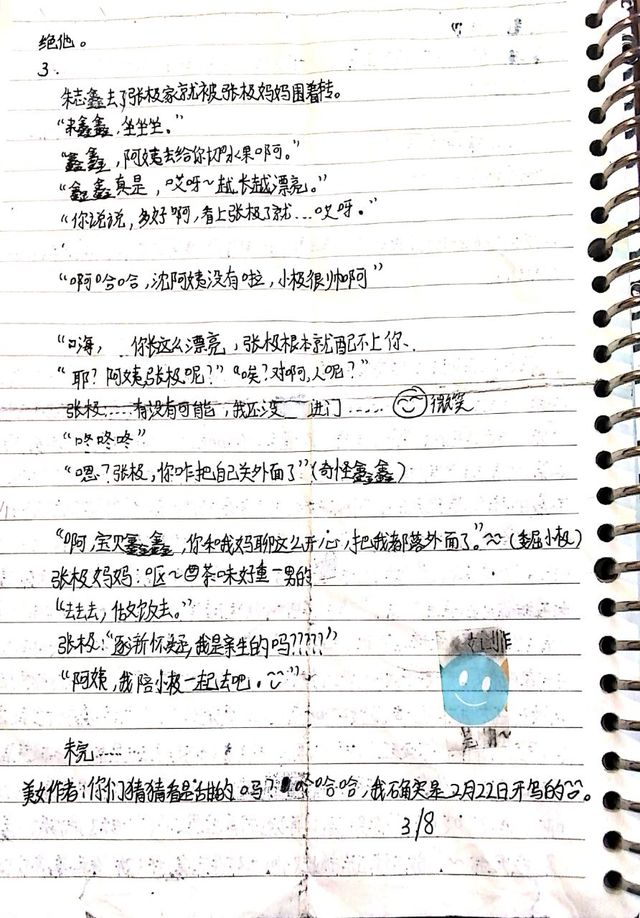 绝他。
3.
朱志鑫去了张极家就被张极妈妈围着转。
“来鑫鑫,坐坐坐。”
“鑫鑫,阿姨去给你切水果啊。”
“鑫鑫真是,哎呀~越长越漂亮。”
“你说说,多好啊,看上张极了就...哎呀。”
“啊哈哈,沈阿姨没有啦,小极很帅啊”
“嗨, 你长这么漂亮,张极根本就配不上你、
“耶?阿姨,张极呢?”“唉?对啊,人呢?”
张极.....有没有可能,我还没 进门 ..... 微笑
“咚咚咚”
“嗯?张极,你咋把自己关外面了”(奇怪鑫鑫)
“啊,宝贝鑫鑫,你和我妈聊这么开心,把我都落外面了。”~(委屈小极)
张极妈妈:呕~ 茶味好重一男的
“去去去,做饭去。”
张极: 我是亲生的吗?????”
“阿姨,我陪小极一起去吧。”
未完......
美女作者:你们猜猜看是甜的吗? 哈哈,我确实是2月22日开写的 。
3/8